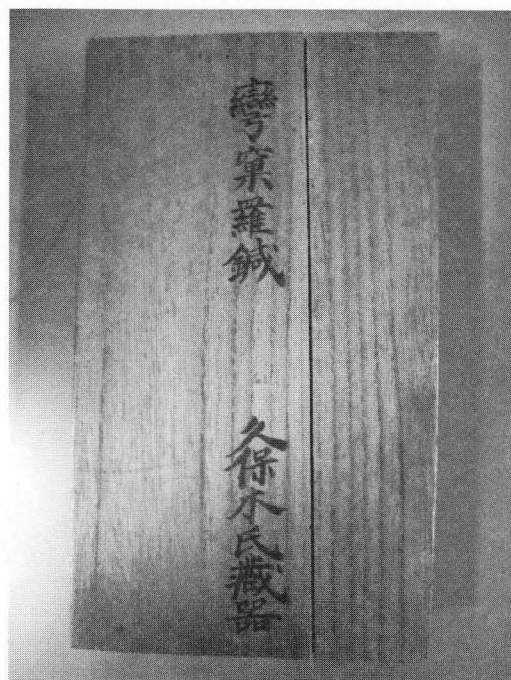 彎窠羅鍼
久保木氏藏器